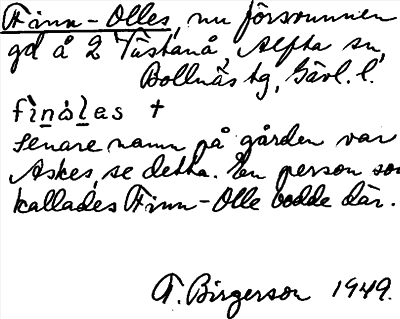 Finn-Olles, nu försvunnen
gd å 2 Tüstanå, Alfta sn,
Bollnäs tg, Gävl. l.
finòlas +
Senare namn på gården var
Askes, se detta. En person som
kallades Finn-Olle bodde där.
F. Birgerson 1949.